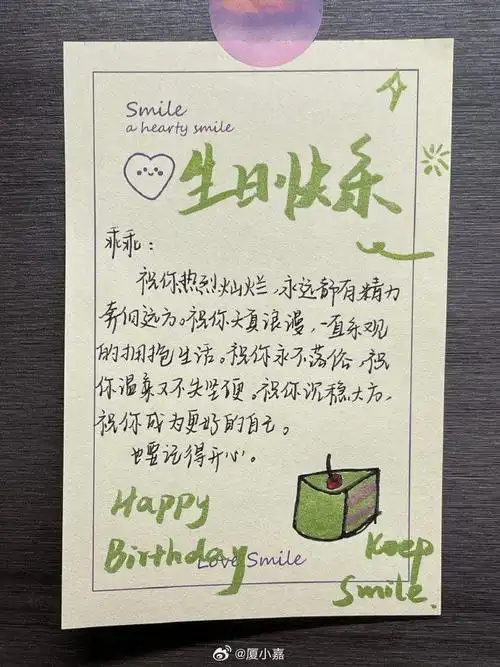 Smile
a hearty smile
生日快乐
乖乖：
祝你热烈灿烂，永远都有精力
奔向远方。祝你天真浪漫，一直乐观
的拥抱生活。祝你永不落俗，祝
你温柔又不失坚硬。祝你沉稳大方，
祝你成为更好的自己。
也要记得开心。
Happy
Birthday
Love Smile
Keep
Smile.
@厦小嘉